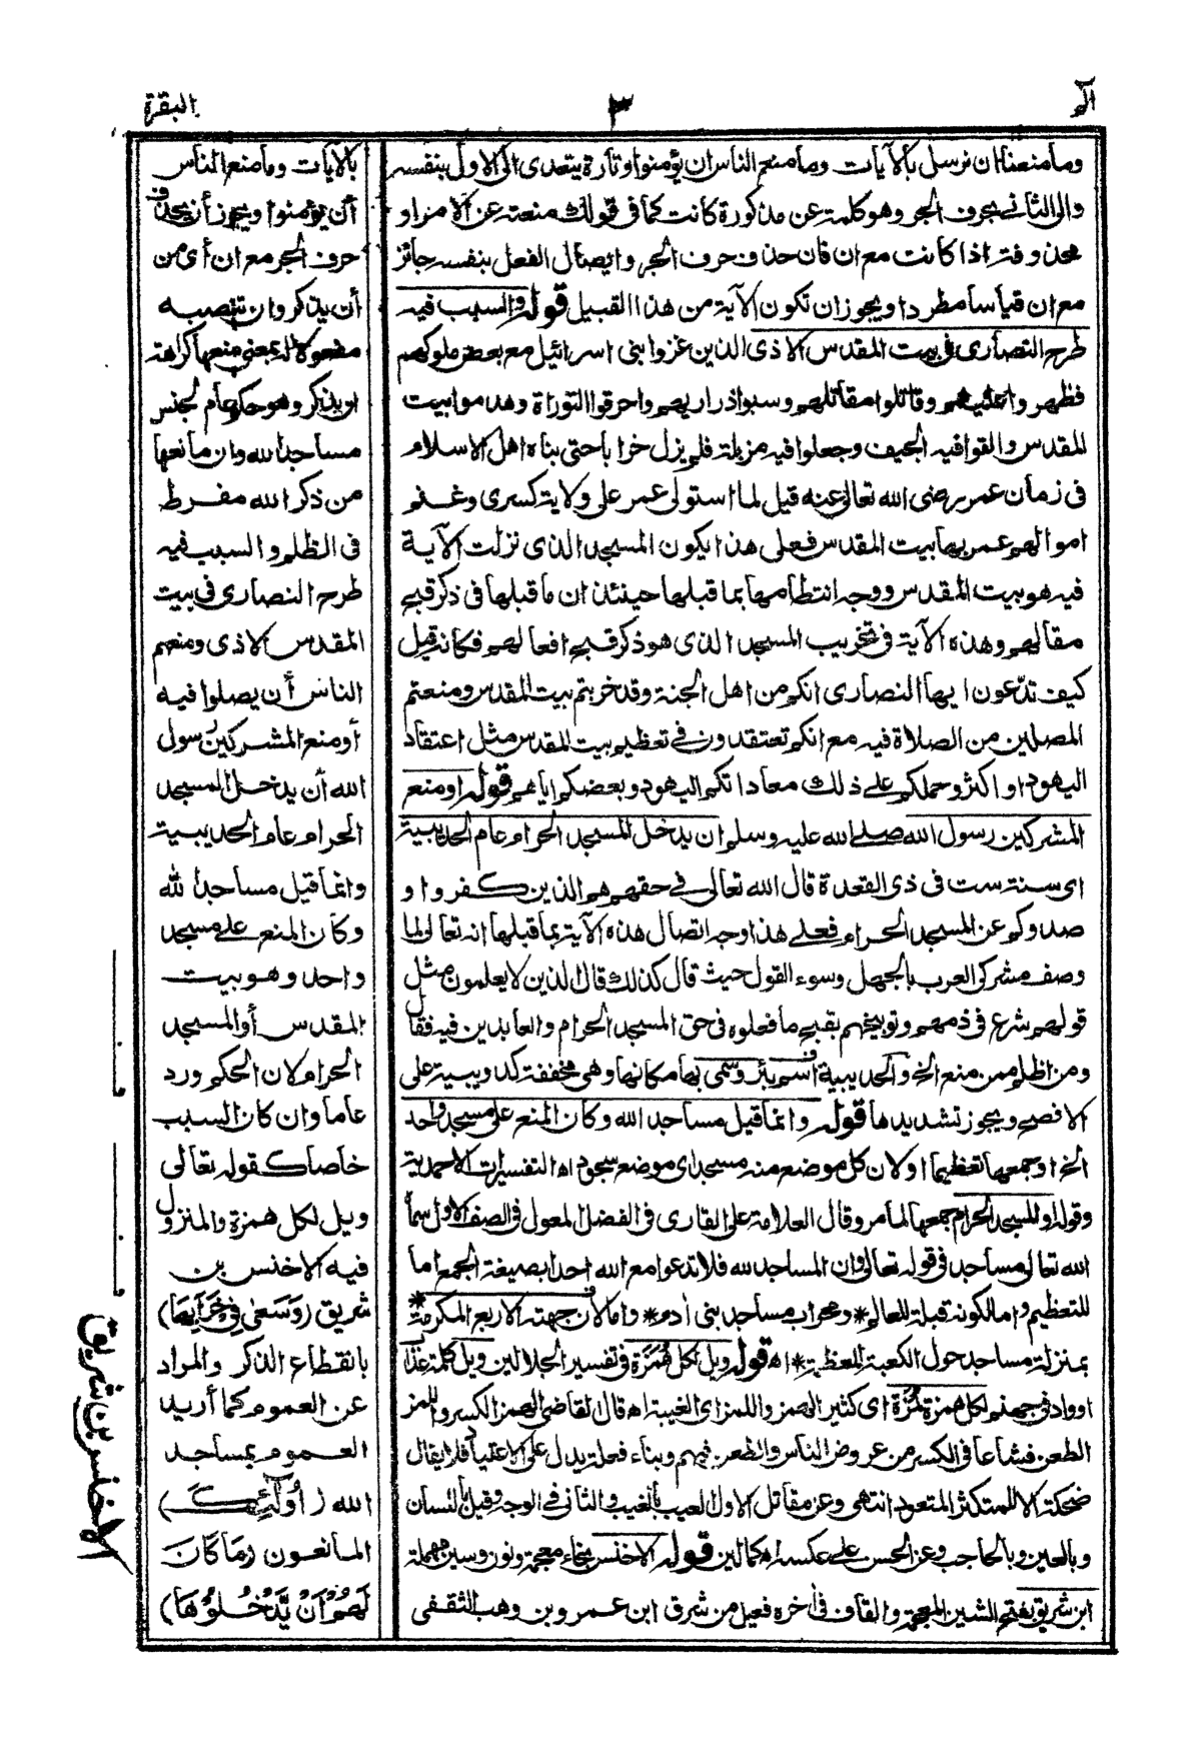 الم
٣
البقرة
وما منعنا ان نرسل بالآيات وما منع الناس ان يؤمنوا وتارة يتعدى الى الاول بنفسه
والى الثانى بحرف الجر وهو كلمة عن مذكورة كانت كما فى قولك منعته عن الامر او
محذوفة اذا كانت مع ان فان حذف حرف الجر وايصال الفعل بنفسه جائز
مع ان قياسا مطردا ويجوز ان تكون الآية من هذا القبيل قوله والسبب فيه
طرح النصارى فى بيت المقدس الاذى الذين غزوا بنى اسرائيل مع بعض ملوكهم
فظهروا عليهم وقاتلوا مقاتلهم وسبوا ذراريهم واحرقوا التوراة وهدموا بيت
المقدس والقوا فيه الجيف وجعلوا فيه مزبلة فلم يزل خرابا حتى بناه اهل الاسلام
فى زمان عمر رضى الله تعالى عنه قيل لما استولى عمر على ولاية كسرى وغنم
اموالهم عمر بها بيت المقدس فعلى هذا يكون المسجد الذى نزلت الآية
فيه هو بيت المقدس ووجه انتظامها بما قبلها حينئذ ان ما قبلها فى ذكر قبح
مقالهم وهذه الآية فى تخريب المسجد الذى هو ذكر قبح افعالهم فكانه قيل
كيف تدّعون ايها النصارى انكم من اهل الجنة وقد خربتم بيت المقدس ومنعتم
المصلين من الصلاة فيه مع انكم تعتقدون فى تعظيم بيت المقدس مثل اعتقاد
اليهود او اكثر وحملكم على ذلك معاداتكم اليهود وبعضكم اياهم قوله او منع
المشركين رسول الله صلى الله عليه وسلم ان يدخل المسجد الحرام عام الحديبية
اى سنة ست فى ذى القعدة قال الله تعالى فى حقهم هم الذين كفروا و
صدوكم عن المسجد الحرام فعلى هذا وجه اتصال هذه الآية بما قبلها انه تعالى لما
وصف مشركى العرب بالجهل وسوء القول حيث قال كذلك قال الذين لا يعلمون مثل
قولهم شرع فى ذمهم وتوبيخهم بقبح ما فعلوه فى حق المسجد الحرام والعابدين فيه فقال
ومن اظلم ممن منع الخ والحديبية اسم بئر وسمى بها مكانها وهى مخففة كدويبية على
الافصح ويجوز تشديدها قوله وانما قيل مساجد الله وكان المنع على مسجد واحد
الخ او جمعها تعظيما او لان كل موضع منه مسجد اى موضع سجود اه التفسيرات الاحمدية
وقوله او المسجد الحرام جمعها لما مر وقال العلامة على القارى فى الفضل المعول فى الصف الاول سماه
الله تعالى مساجد فى قوله تعالى وان المساجد لله فلا تدعوا مع الله احدا بصيغة الجمع اما
للتعظيم واما لكونه قبلة للعالم * ومحراب مساجد بنى ادم * واما لان جهته الاربع المكرمة *
بمنزلة مساجد حول الكعبة المعظمة * اه قوله ويل لكل همزة فى تفسير الجلالين ويل كلمة عذاب
او واد فى جهنم لكل همزة لمزة اى كثير الهمز واللمز اى الغيبة اه قال القاضى الهمز الكسر واللمز
الطعن فشاعا فى الكسر من عروض الناس والطعن فيهم وبناء فعلة يدل على الاعتياد فلا يقال
ضحكة الا للمتكثر المتعود انتهى وعن مقاتل الاول العيب بالغيب والثانى فى الوجه وقيل باللسان
وبالعين وبالحاجب وعن الحسن على عكسه اه كمالين قوله الاخنس بخاء معجمة ونون وسين مهملة
ابن شريق بفتح الشين المعجمة والقاف فى اخره فعيل من شرق ابن عمرو بن وهب الثقفى
بالآيات وما منع الناس
أن يؤمنوا ويجوز أن يحذف
حرف الجر مع ان أى من
أن يذكر وان تنصبه
مفعولا له بمعنى منعها كراهة
ان يذكر وهو حكم عام لجنس
مساجد الله وان مانعها
من ذكر الله مفرط
فى الظلم والسبب فيه
طرح النصارى فى بيت
المقدس الاذى ومنعهم
الناس أن يصلوا فيه
أو منع المشركين رسول
الله أن يدخل المسجد
الحرام عام الحديبية
وانما قيل مساجد الله
وكان المنع على مسجد
واحد وهو بيت
المقدس أو المسجد
الحرام لان الحكم ورد
عاما وان كان السبب
خاصا كقوله تعالى
ويل لكل همزة والمنزول
فيه الاخنس بن
شريق (وَسَعٰى فِىْ خَرَابِهَا)
بانقطاع الذكر والمراد
عن العموم كما أريد
العموم بمساجد
الله (أُولٰٓئِكَ)
المانعون (مَا كَانَ
لَهُمْ اَنْ يَّدْخُلُوْهَا)
الاخنس بن شريق